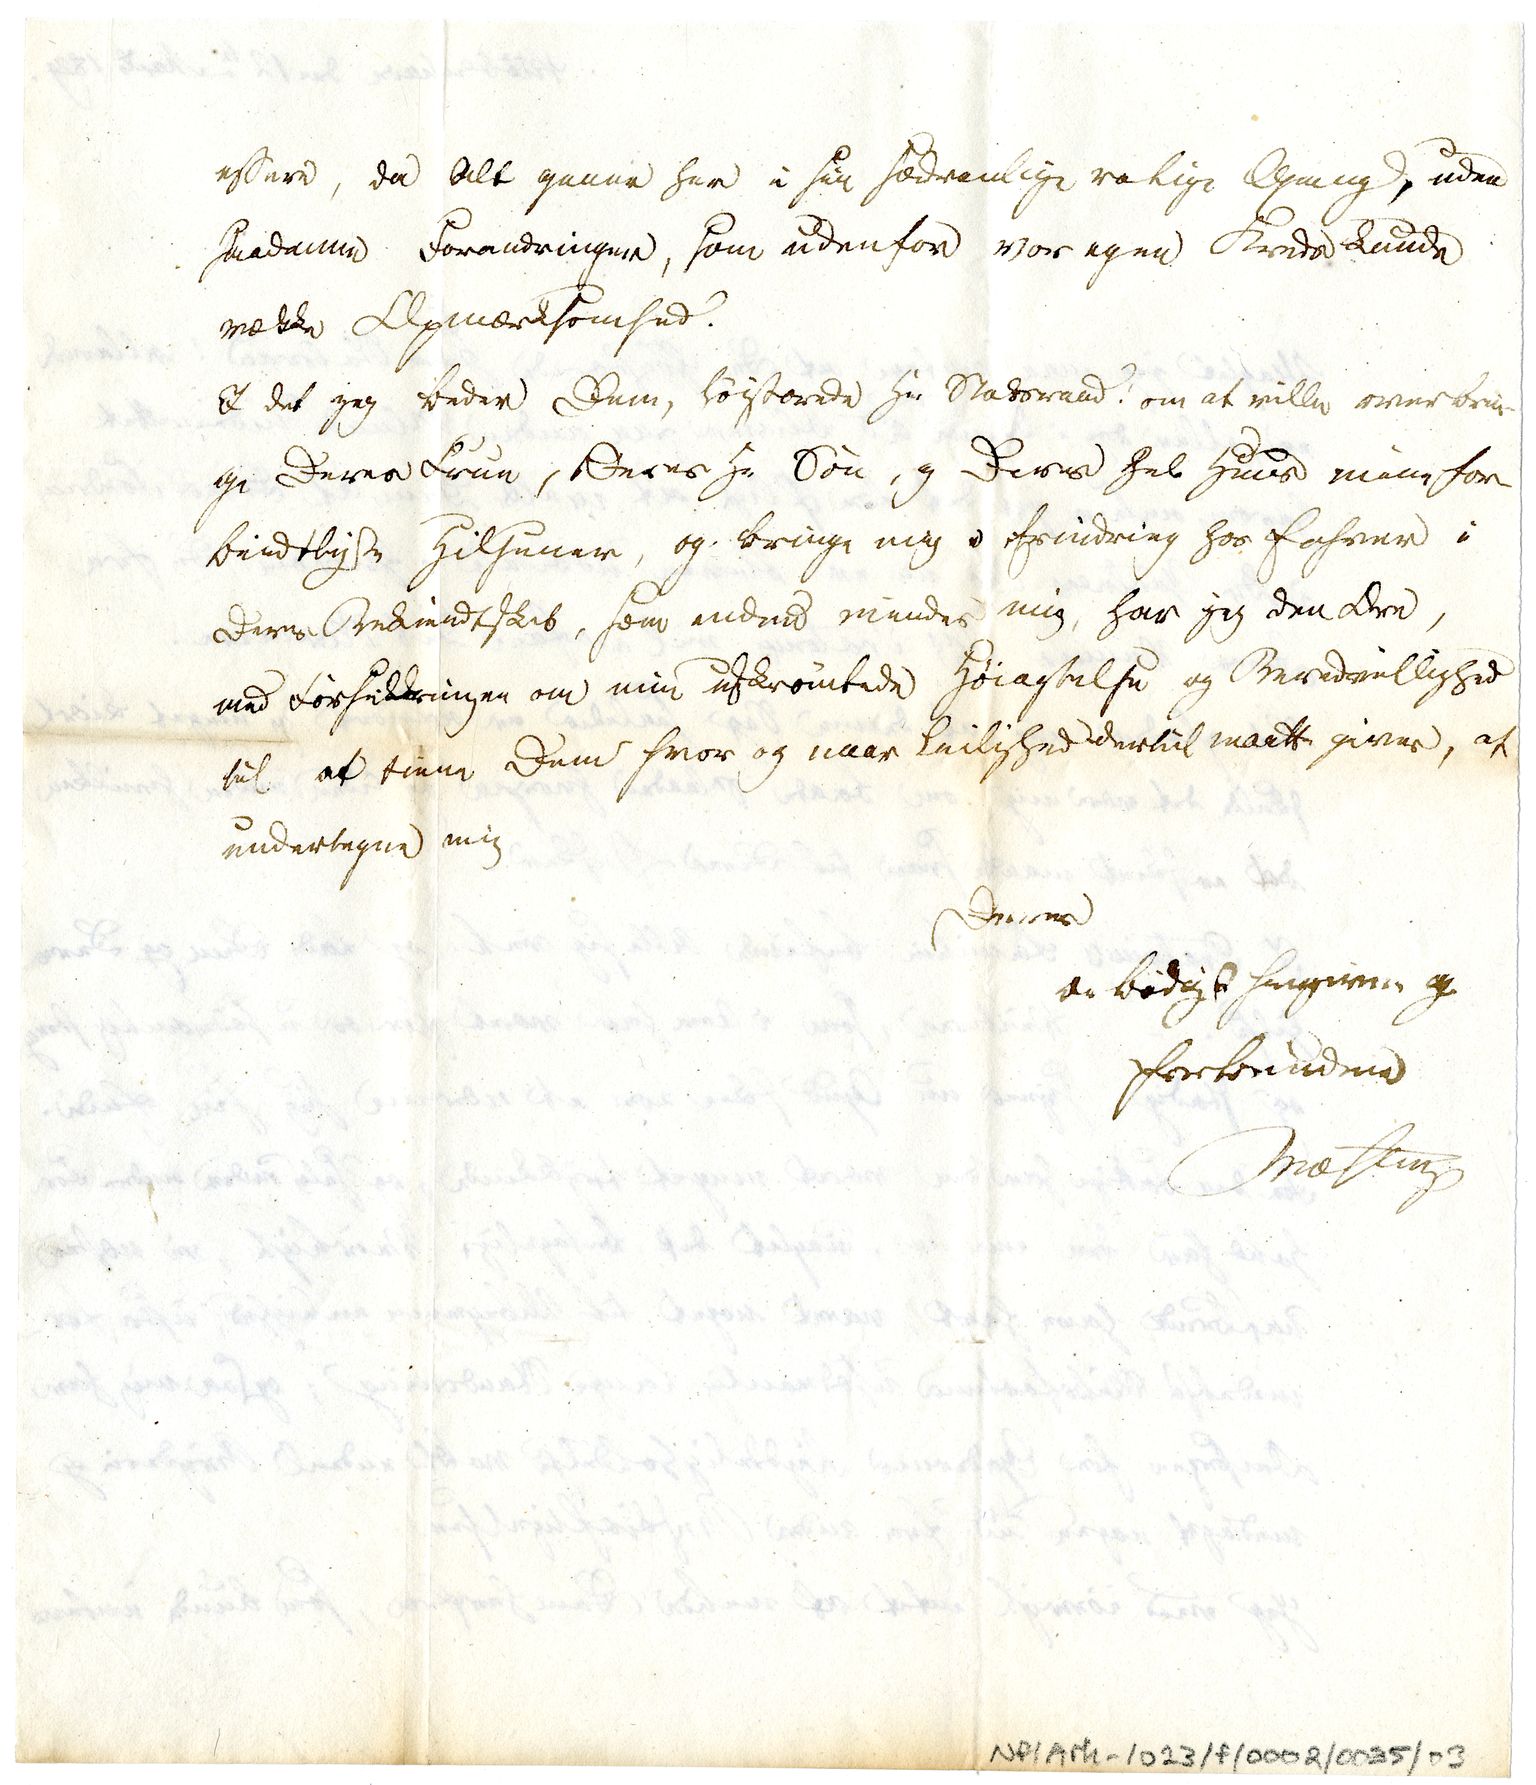 essere, da Alt ganer her i sin sædvanlige rolige Gang, uden
saadanne Forandringer, som udenfor vor egen Kreds kunde
vække Opmærksomhed.
I det jeg beder Dem, høistærede Hr Statsraad! om at ville overbrin-
ge Deres Frue, Deres Hr Søn, og Deres hele Huus mine for-
bindtligste Hilsener, og bringe mig i Erindring hos Enhver i
Deres Bekiendtskab, som endnu mindes mig, har jeg den Ære,
med Forsikkringen om min uskrømtede Høiagtelse og Beredvillighed
til at tiene Dem hvor og naar Leilighed dertil maatte gives, at
undertegne mig
Deres
ærbødigst hengivne og
forbundne
Møsting
NP/Ark-1023/f/0002/0035/03